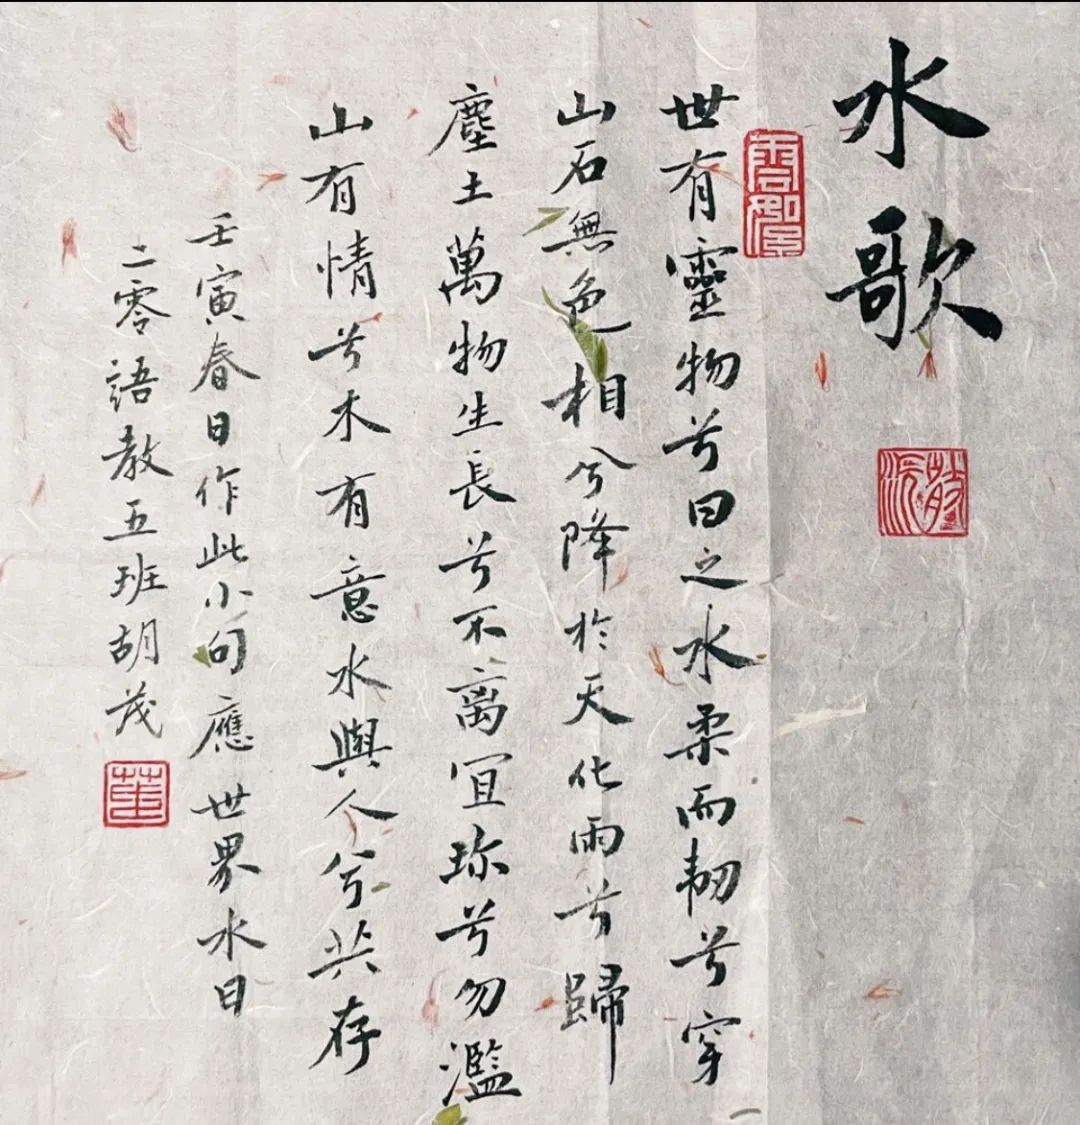 水歌
世有靈物兮曰之水柔而韧兮穿
山石無色相兮降於天化雨兮歸
塵土萬物生長兮不離宜珎兮勿濫
山有情兮木有意水與人兮共存
壬寅春日作此小句應世界水日
二零語教五班胡茂